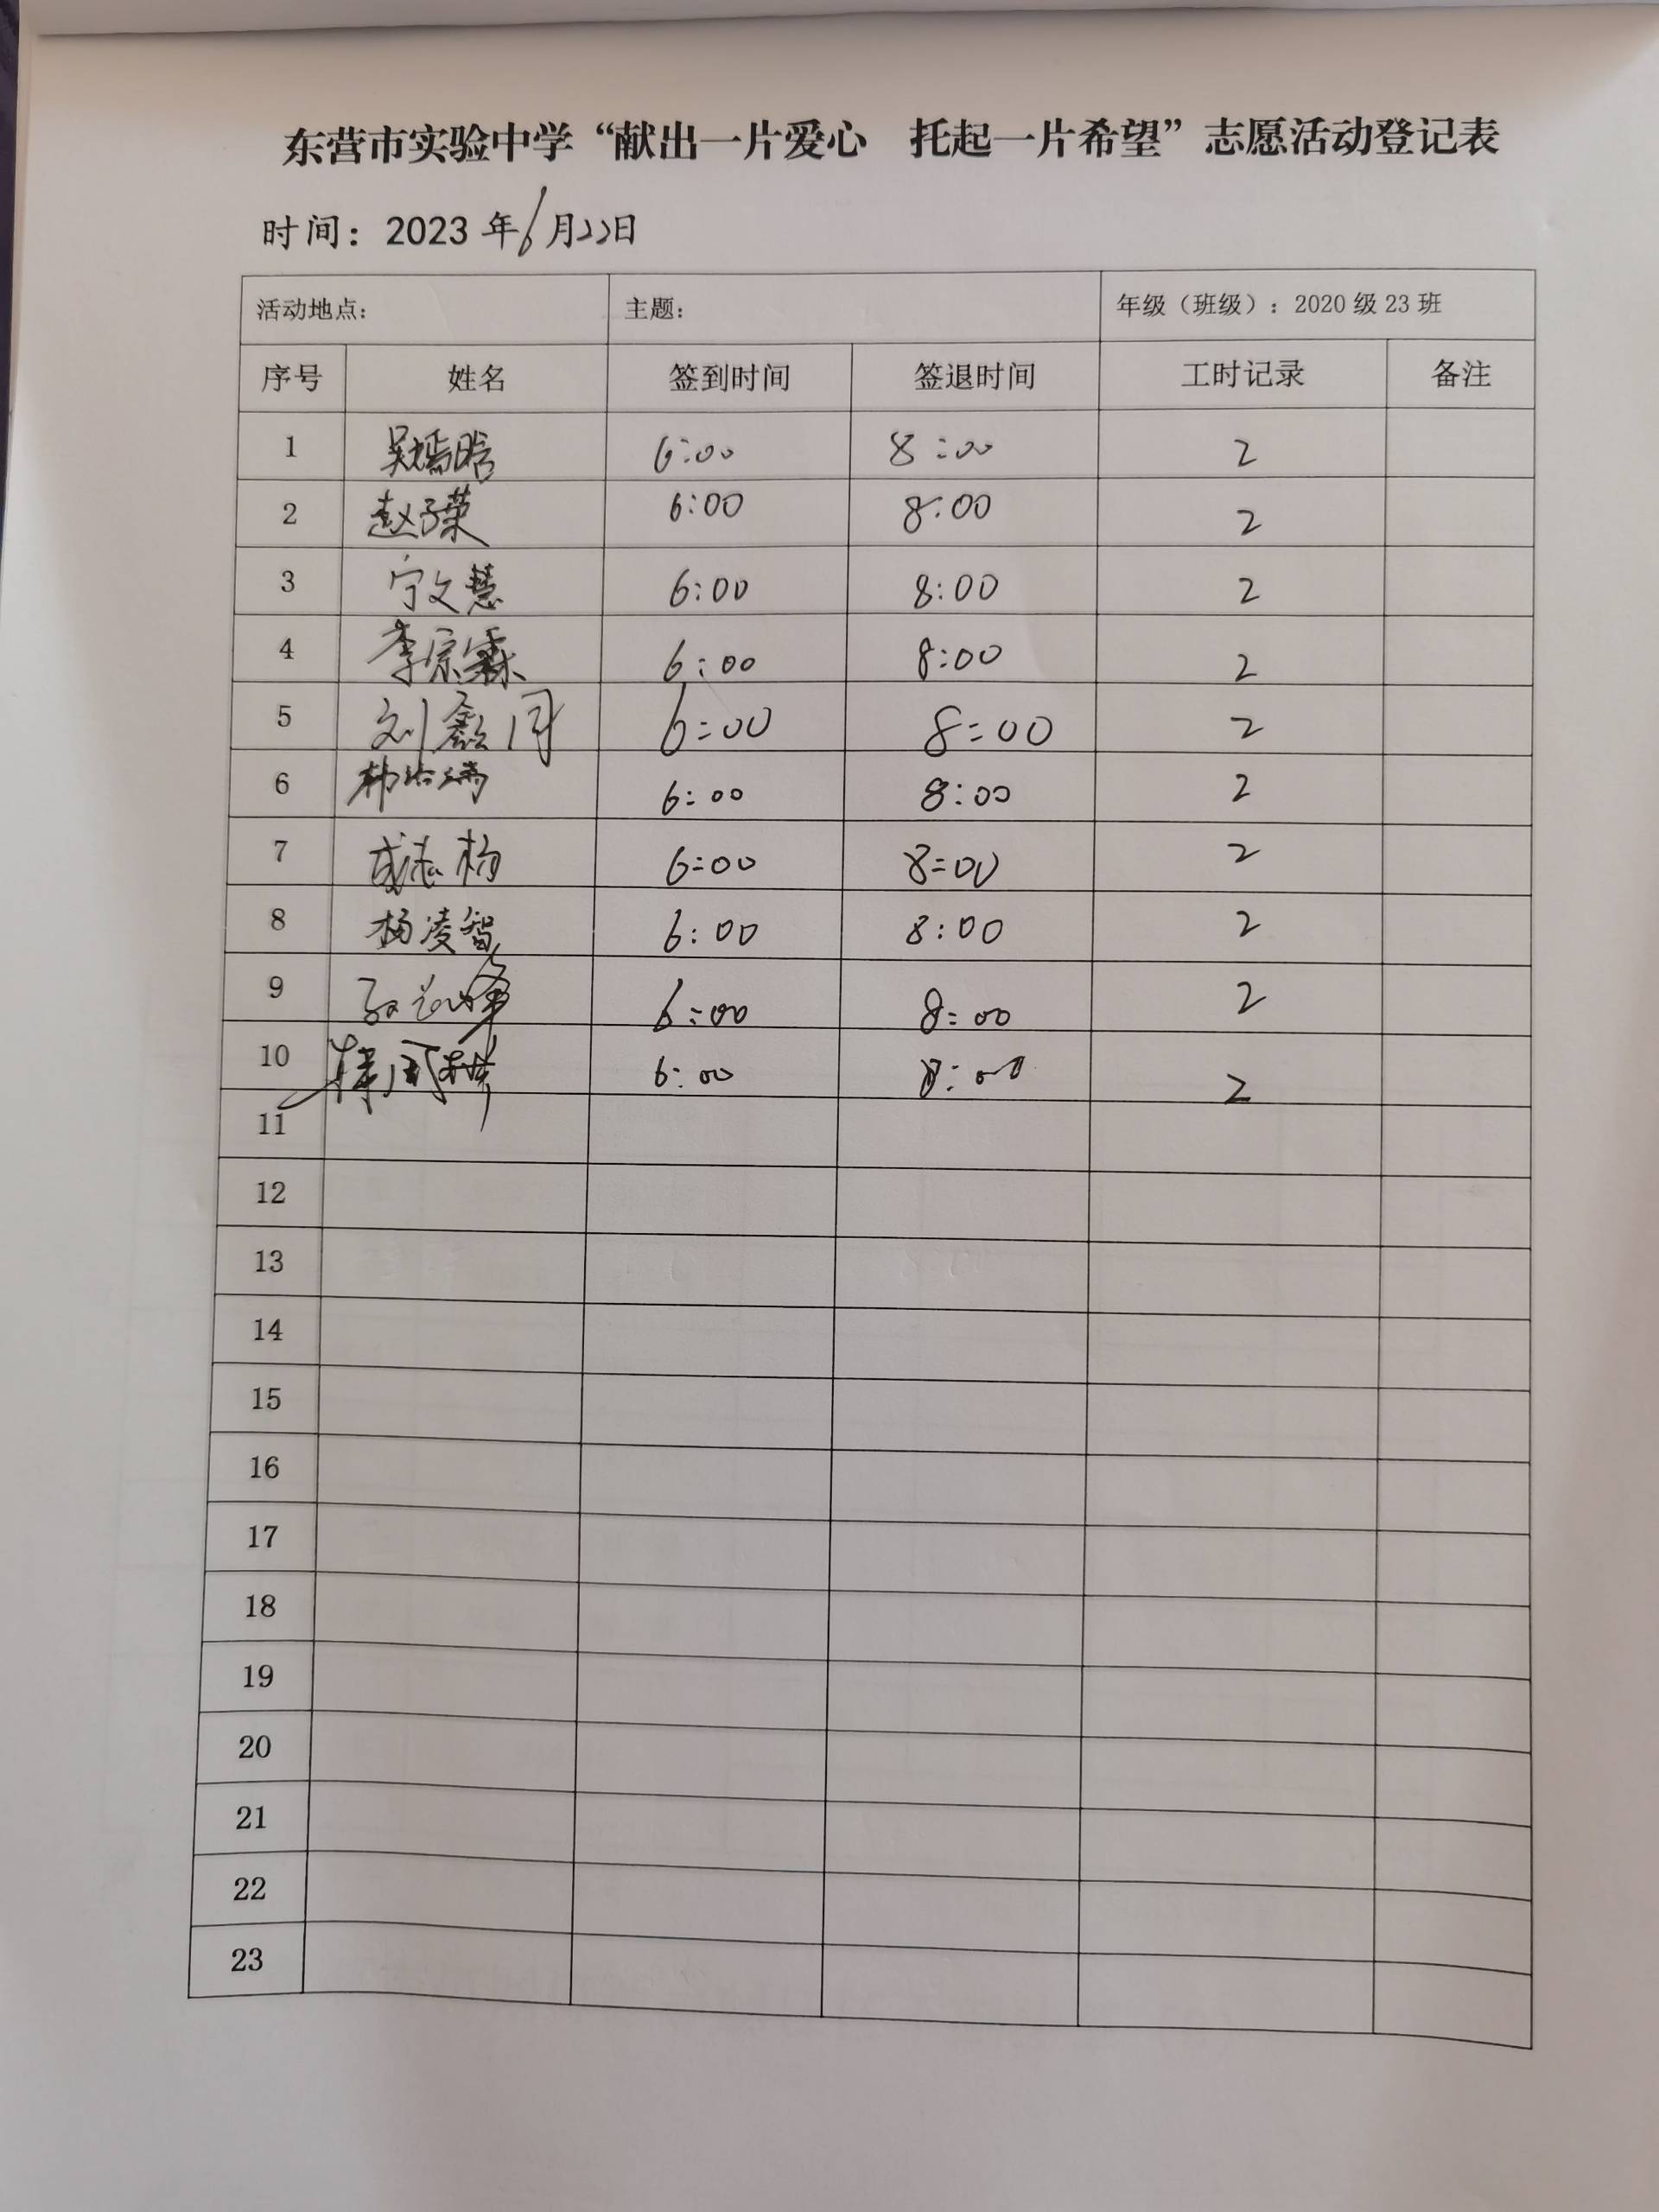 东营市实验中学“献出一片爱心 托起一片希望”志愿活动登记表
时间：2023 年6月22日
活动地点: 主题: 年级（班级）: 2020 级 23 班
序号 姓名 签到时间 签退时间 工时记录 备注
1 吴嫣晗 6:00 8:00 2
2 赵子荣 6:00 8:00 2
3 宁文慧 6:00 8:00 2
4 李宗霖 6:00 8:00 2
5 刘鑫同 6:00 8:00 2
6 6:00 8:00 2
7 成志杨 6:00 8:00 2
8 杨凌智 6:00 8:00 2
9 6:00 8:00 2
10 6:00 8:00 2
11
12
13
14
15
16
17
18
19
20
21
22
23